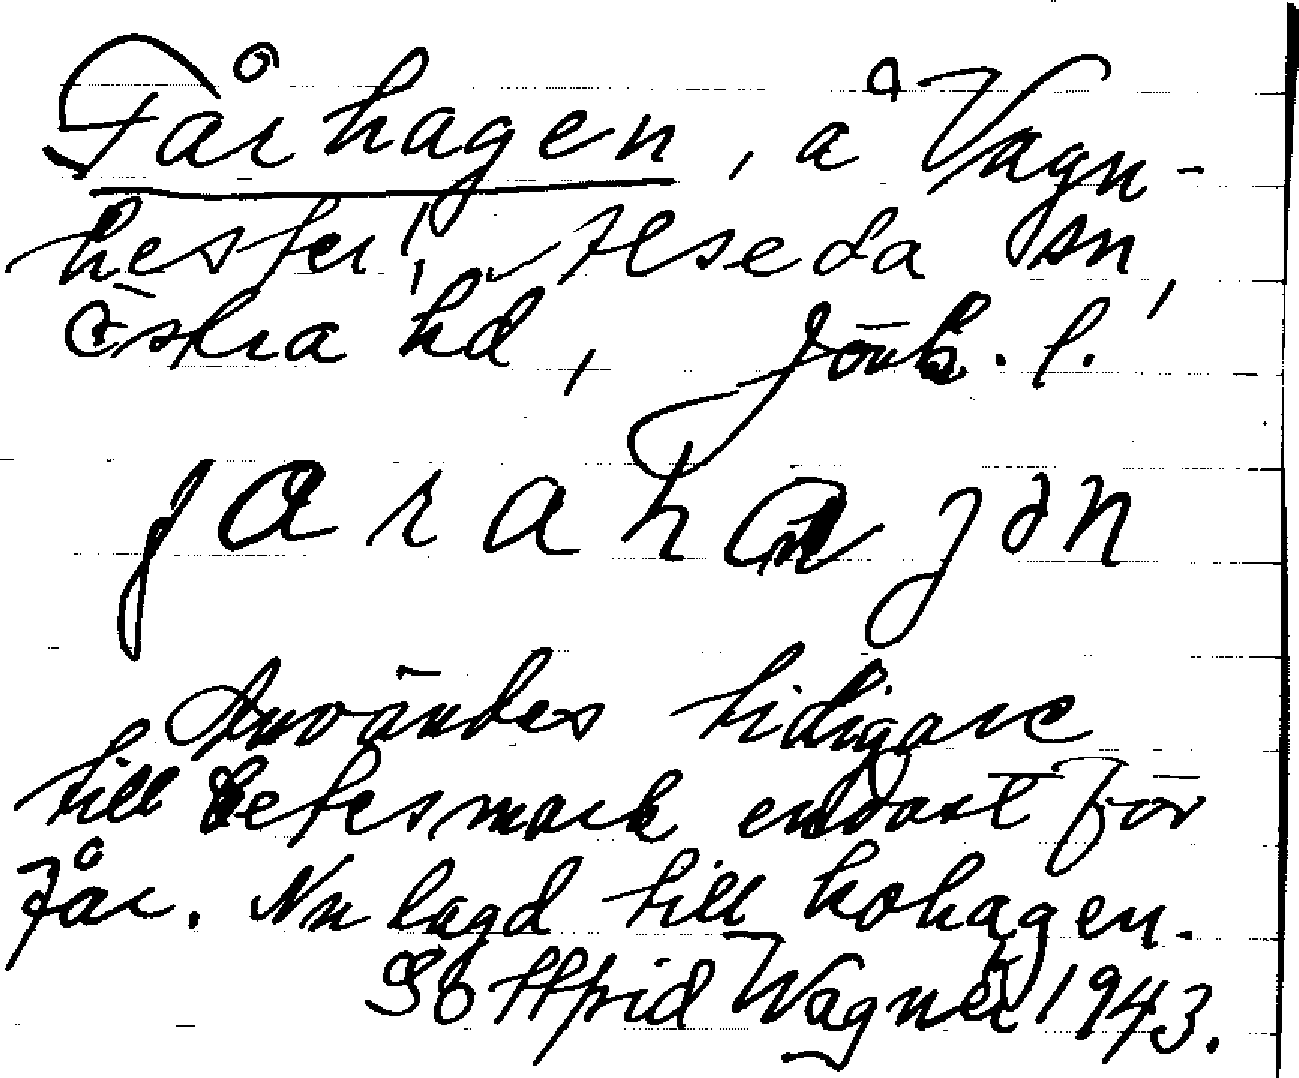 Fårhagen, å Vagn-
hester, Alseda sn,
Östra hd, Jönk. l.
farahagən
Användes tidigare
till betesmark endast för
får. Nu lagd till kohagen.
Gottfrid Wagnér 1943.